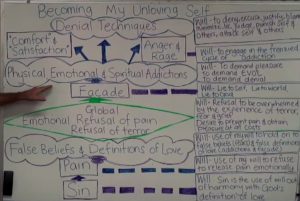 Becoming My Unloving Self
Denial Techniques
"Comfort &
Satisfaction"
Anger &
Rage
Physical, Emotional & Spiritual Addictions
Facade
Global
Emotional Refusal of pain
Refusal of terror
False Beliefs & Definitions of Love
Pain
Sin
Will - to deny, excuse, justify, blame
others, attack self & others
Will - to engage in the
cycle of addiction
Will - to demand pleasure
to demand EVOL
to demand denial
Will - Lie to Self, Lie to World,
Lie to God
Will - Refusal to be overwhelmed
by the experience of terror,
fear & grief
Desire to prevent pain & obtain
pleasure at all costs
Will - use of my will to hold on to
false beliefs & false definitions
Will - use of my will to refuse
to release pain emotionally
Will - Sin is the use of will out
of harmony with God's
definition of love